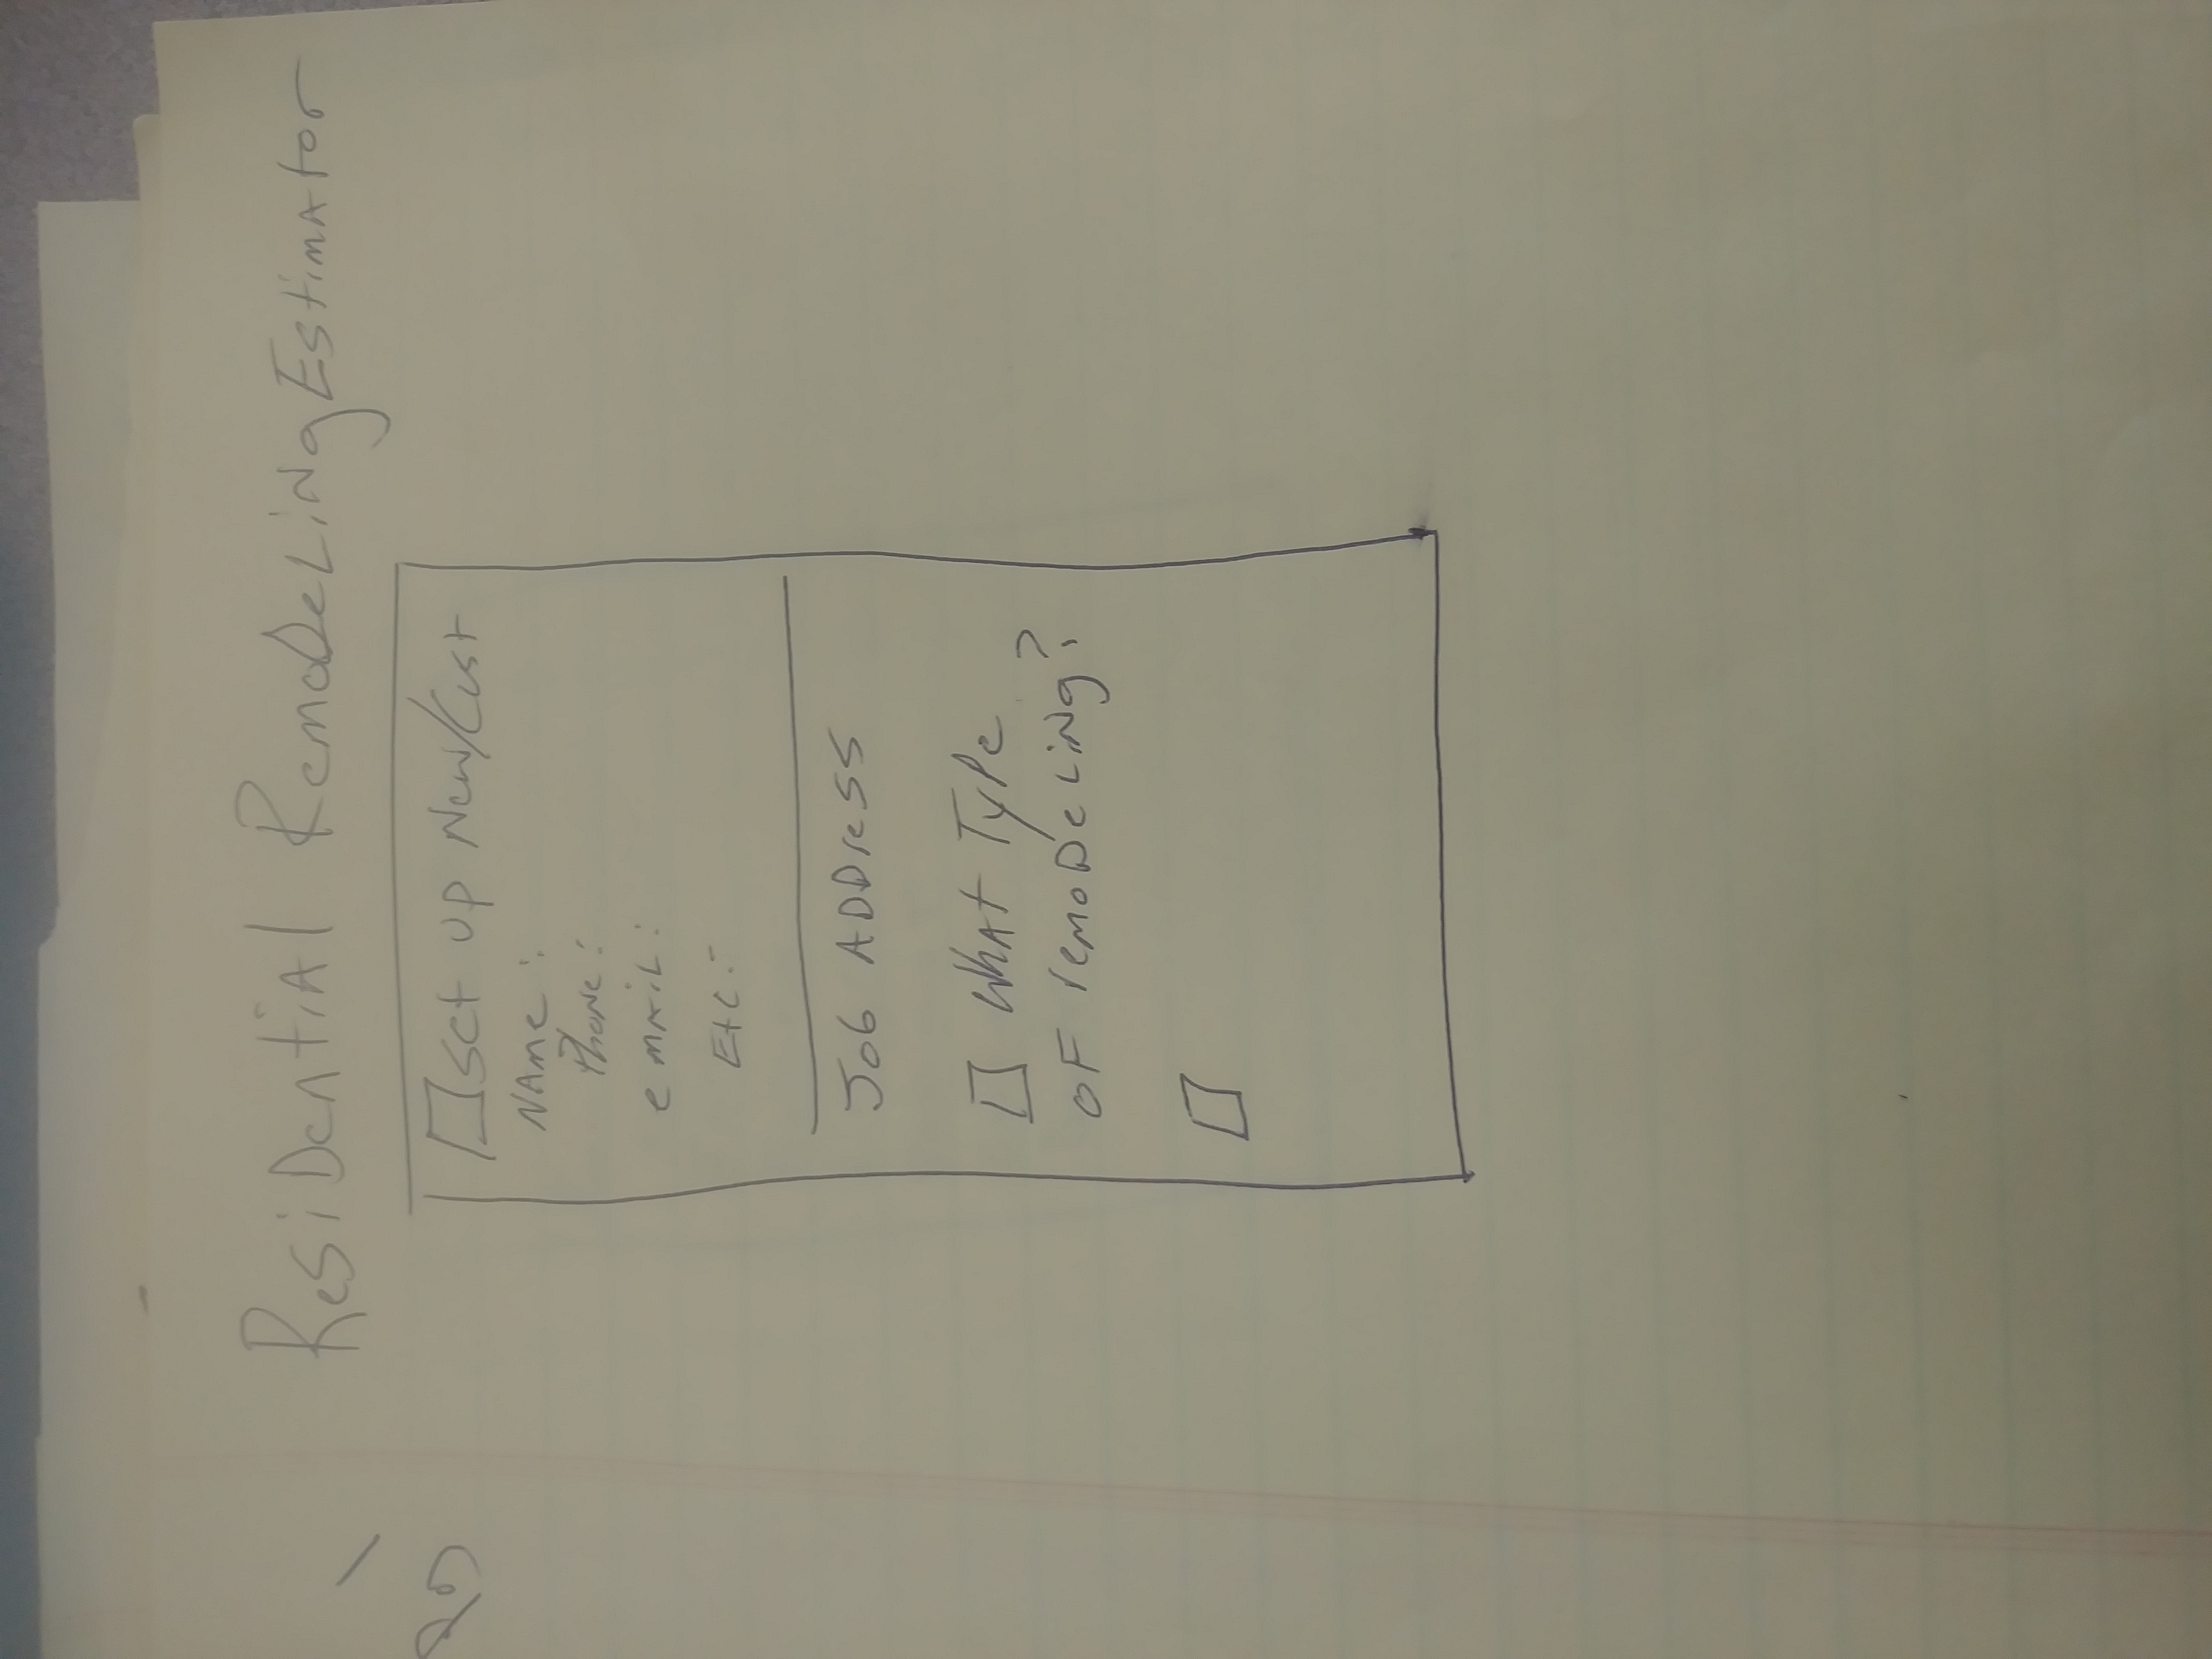 Pg 1
Residential Remodeling Estimator
Set up New/Cust
Name:
Phone:
email:
Etc:
Job Address
What Type
of remodeling?